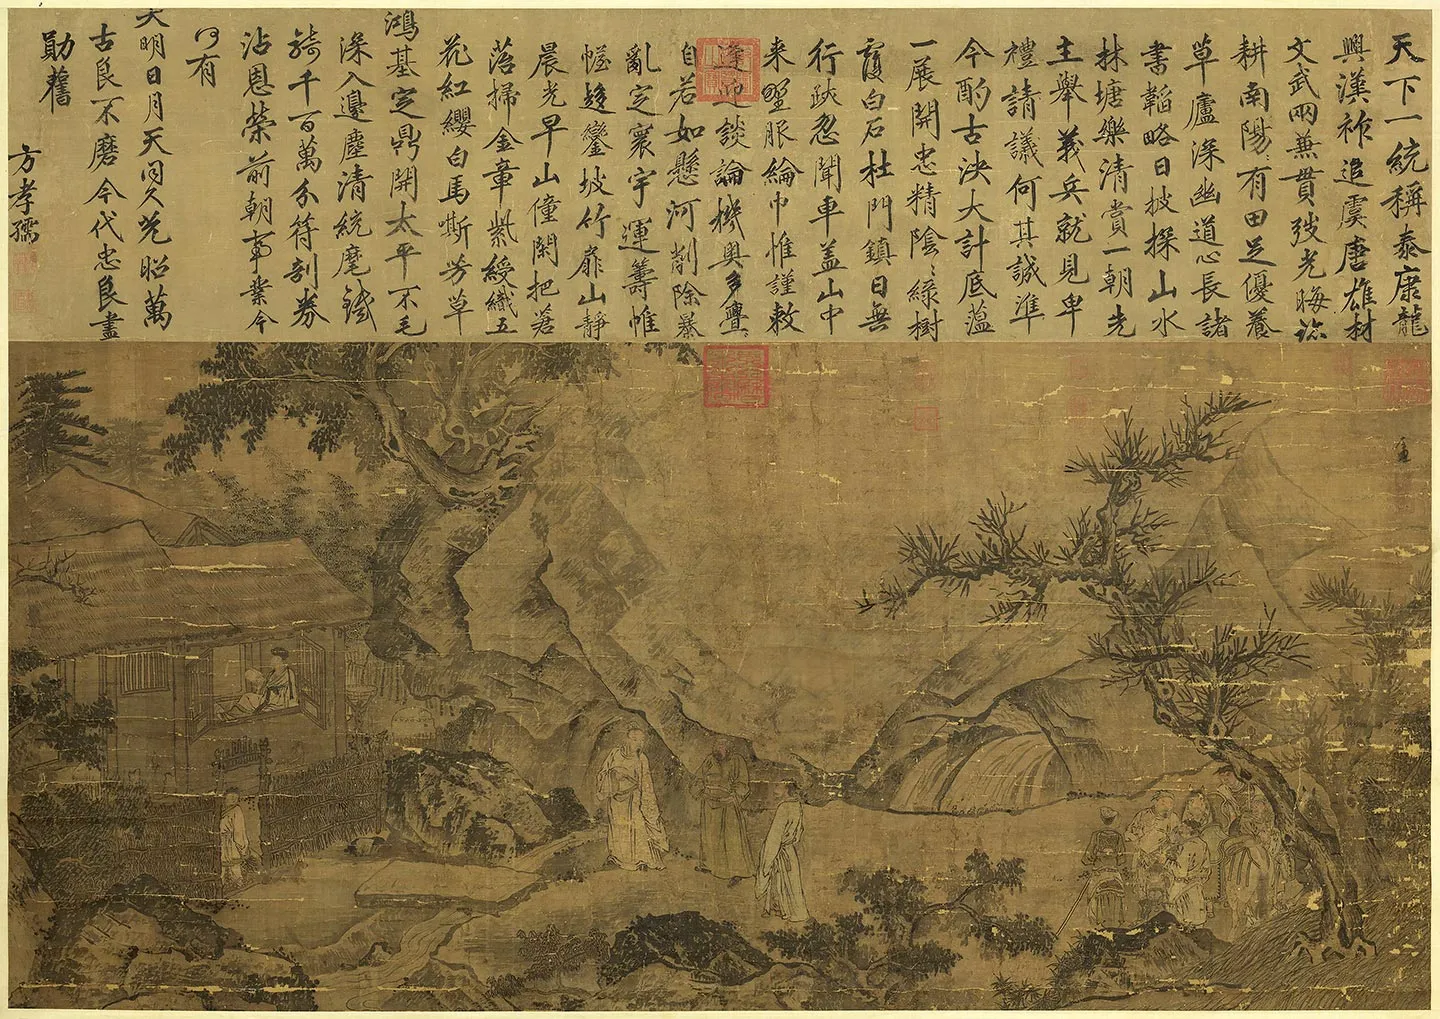 天下一統稱泰康龍
興漢祚追虞唐雄材
文武兩兼貫弢光晦迹
耕南陽有田足優養
草廬深幽道心長諸
書韜略日披探山水
林塘樂清賞一朝先
主舉義兵就見卑
禮請議何其誠準
今酌古決大計底蘊
一展開忠精陰〻綠樹
覆白石杜門鎮日無
行跡忽聞車盖山中
来野服綸巾惟謹敕
逢迎談論機奧多
自若如懸河削除暴
亂定寰宇運籌帷
幄趨鑾坡竹扉山靜
晨光早山僮閑把蒼
苔掃金章紫綬纖五
花紅纓白馬嘶芳草
鴻基定鼎開太平不毛
深入邊塵清統麾鐵
騎千百萬分符剖券
沾恩榮前朝事業今
何有
大明日月天同久光昭萬
古良不磨今代忠良盡
勛舊
方孝孺